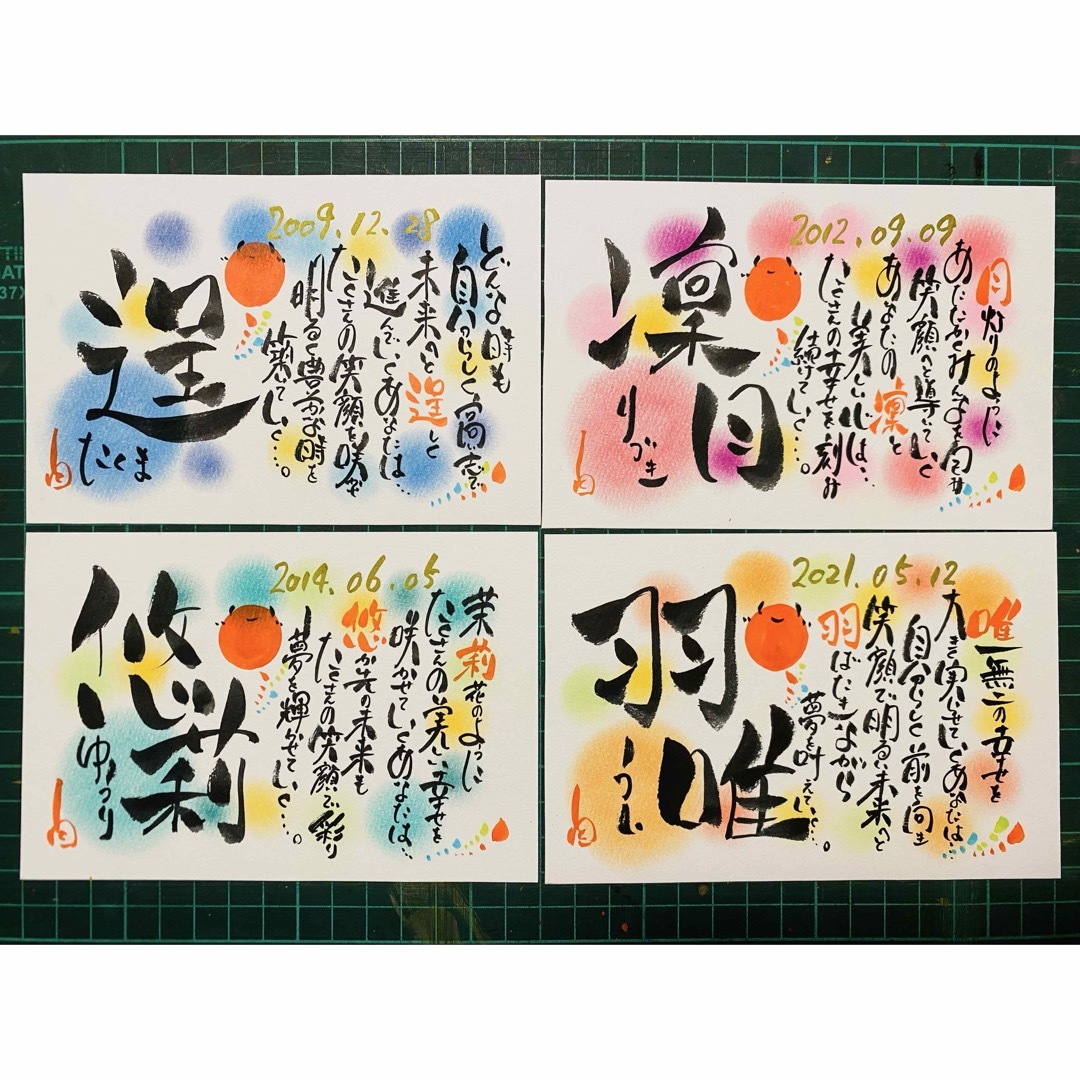 2009.12.28
逞
たくま
どんな時も
自分らしく高い志で
未来へと逞しく
進んでいくあなたは…
たくさんの笑顔を咲かせ
明るく豊かな時を
築いていく…。
2012.09.09
凛月
りづき
月灯りのように
あたたかくみんなを包む
笑顔へと導いていく
あなたの凛と
美しい心は、
たくさんの幸せを刻み
輝
2014.06.05
悠莉
ゆうり
茉莉花のように
たくさんの美しい幸せを
咲かせていくあなたは…
悠か先の未来も
たくさんの笑顔で彩り
夢を輝かせていく…。
2021.05.12
羽唯
うい
唯一無二の幸せを
大きく実らせていくあなたは…
自分らしく前を向き
笑顔で明るい未来へと
羽ばたきながら
夢を叶えていく…。